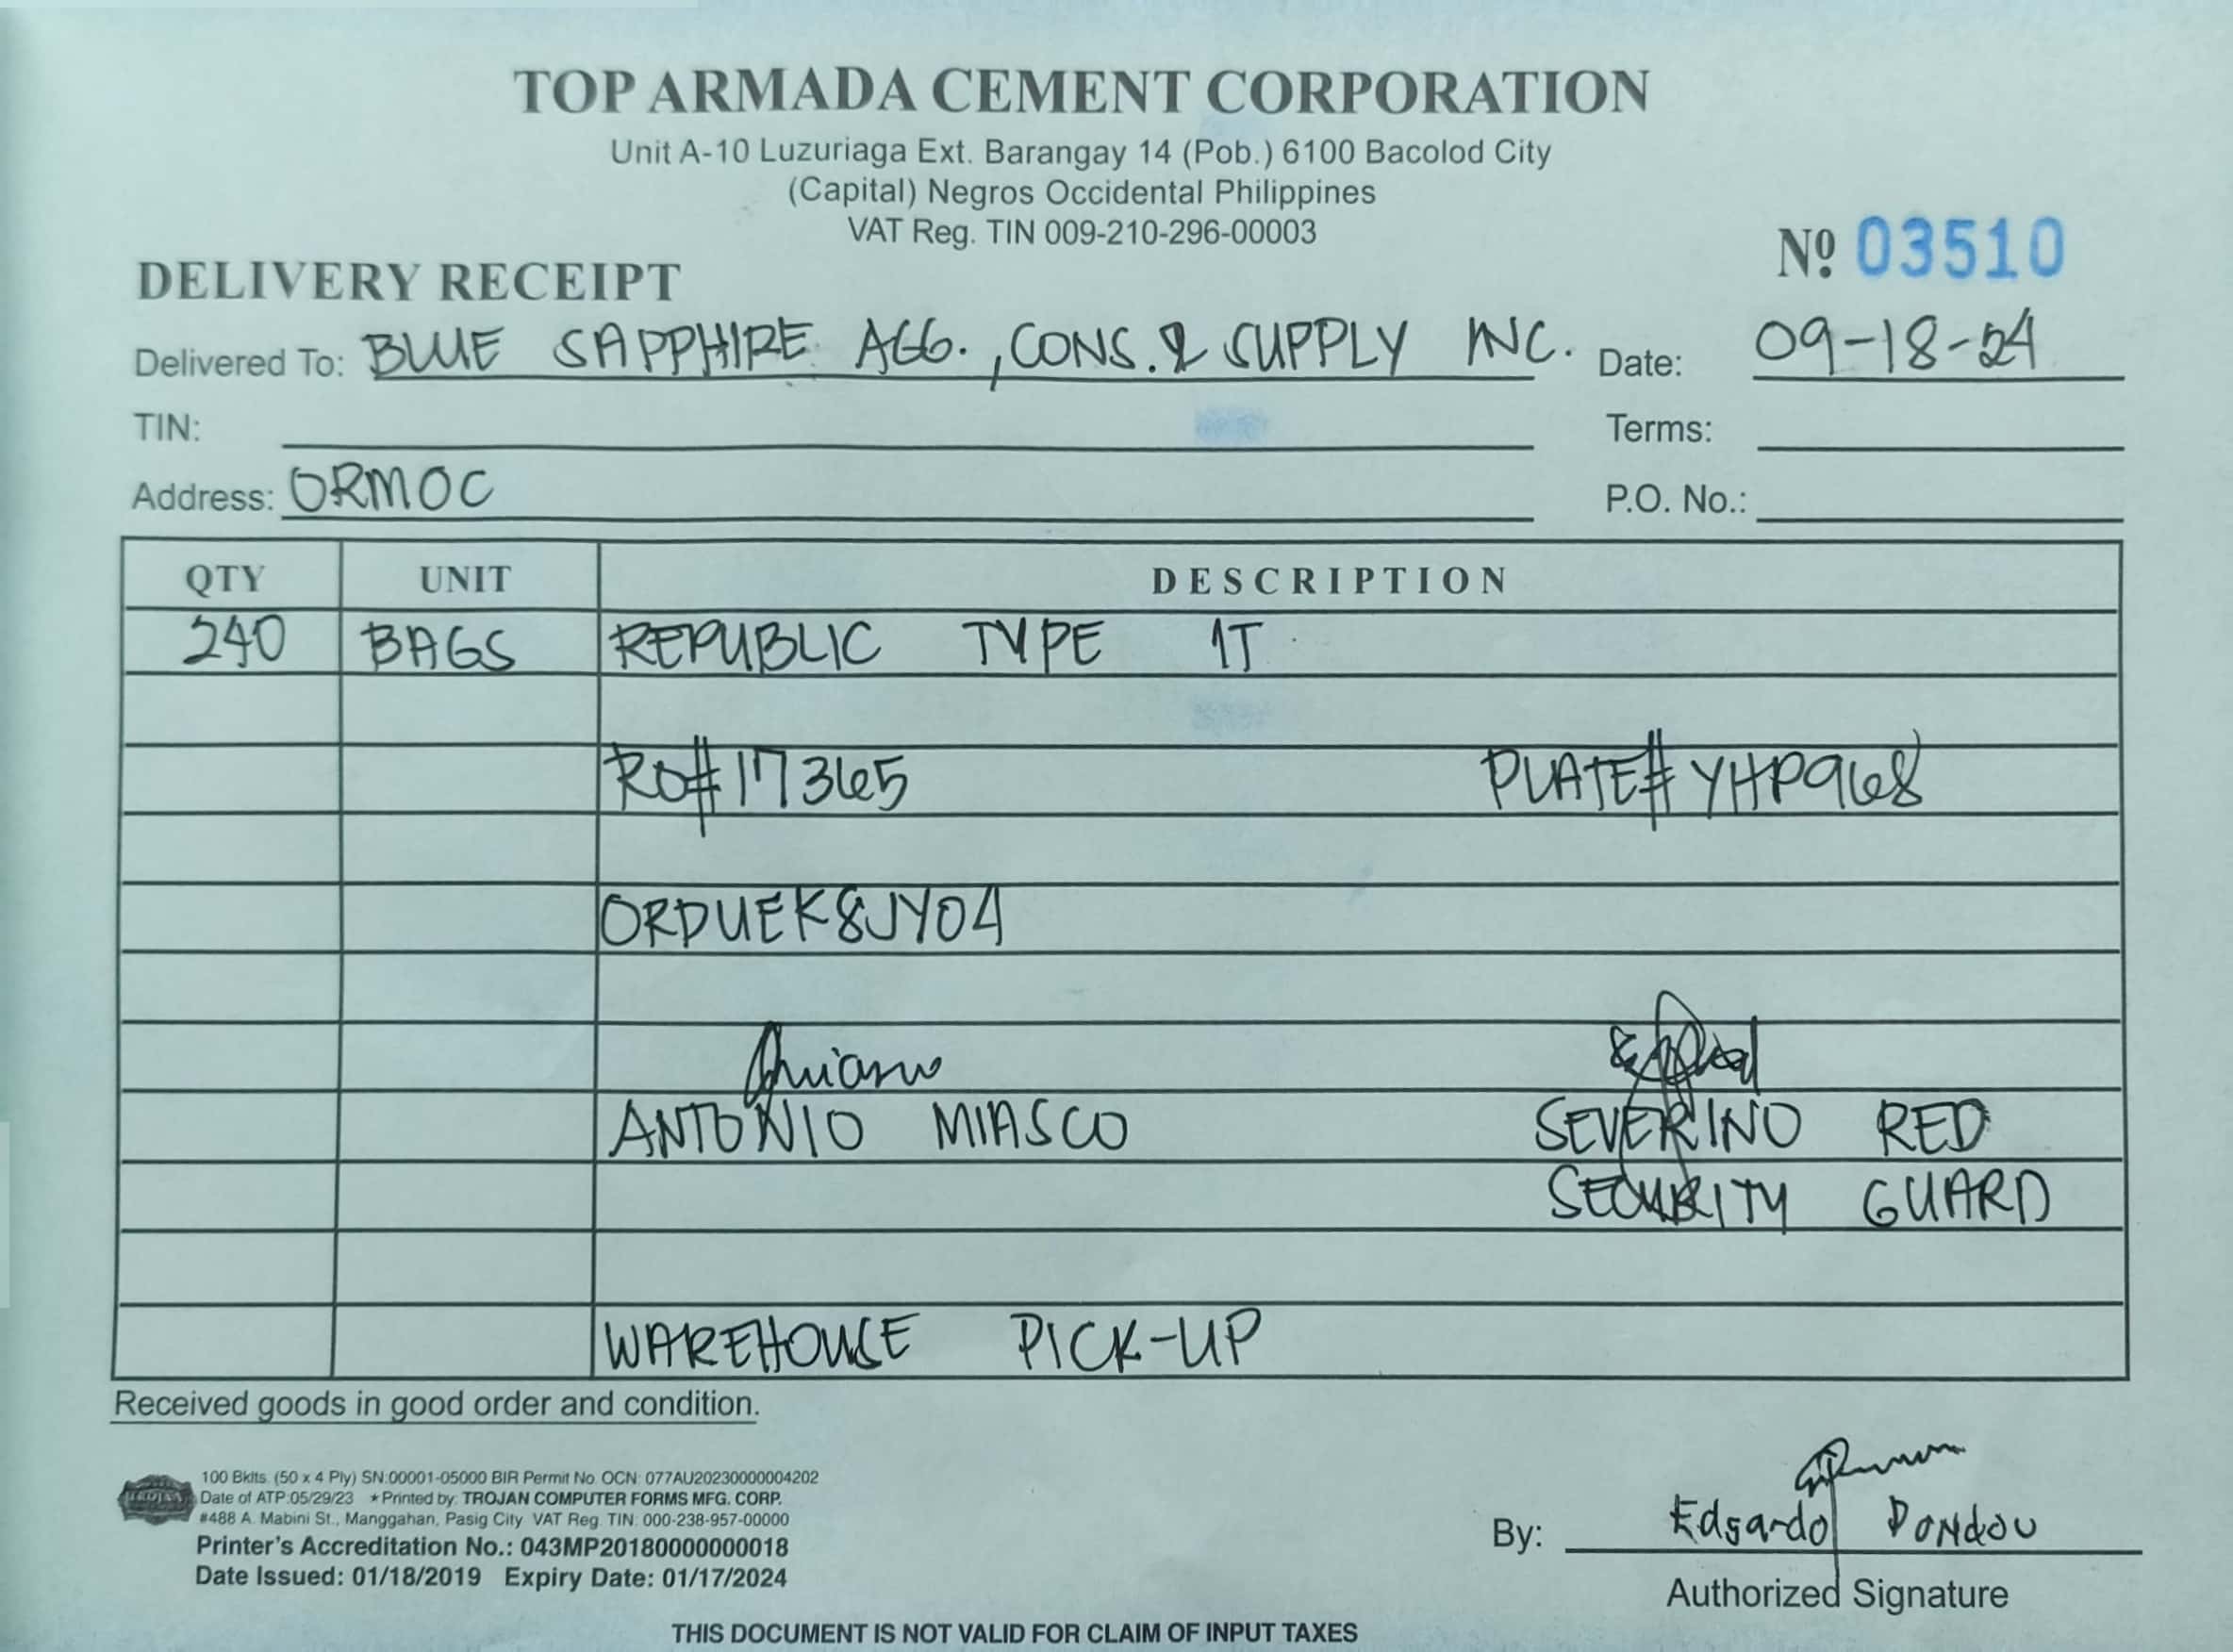 TOP ARMADA CEMENT CORPORATION
Unit A-10 Luzuriaga Ext. Barangay 14 (Pob.) 6100 Bacolod City
(Capital) Negros Occidental Philippines
VAT Reg. TIN 009-210-296-00003
Nº 03510
DELIVERY RECEIPT
Delivered To: BLUE SAPPHIRE AGG., CONS. & SUPPLY INC. Date: 09-18-24
TIN: Terms:
Address: ORMOC P.O. No.:
QTY UNIT DESCRIPTION
240 BAGS REPUBLIC TYPE 1T
RO#17365 PLATE# YHP968
ORDUEK8JY04
ANTONIO MIASCO SEVERINO RED
SECURITY GUARD
WAREHOUSE PICK-UP
Received goods in good order and condition.
TROJAN
100 Bklts. (50 x 4 Ply) SN:00001-05000 BIR Permit No. OCN: 077AU20230000004202
Date of ATP:05/29/23 ★Printed by: TROJAN COMPUTER FORMS MFG. CORP.
#488 A. Mabini St., Manggahan, Pasig City VAT Reg. TIN: 000-238-957-00000
Printer's Accreditation No.: 043MP20180000000018
Date Issued: 01/18/2019 Expiry Date: 01/17/2024
By: Edgardo
Authorized Signature
THIS DOCUMENT IS NOT VALID FOR CLAIM OF INPUT TAXES